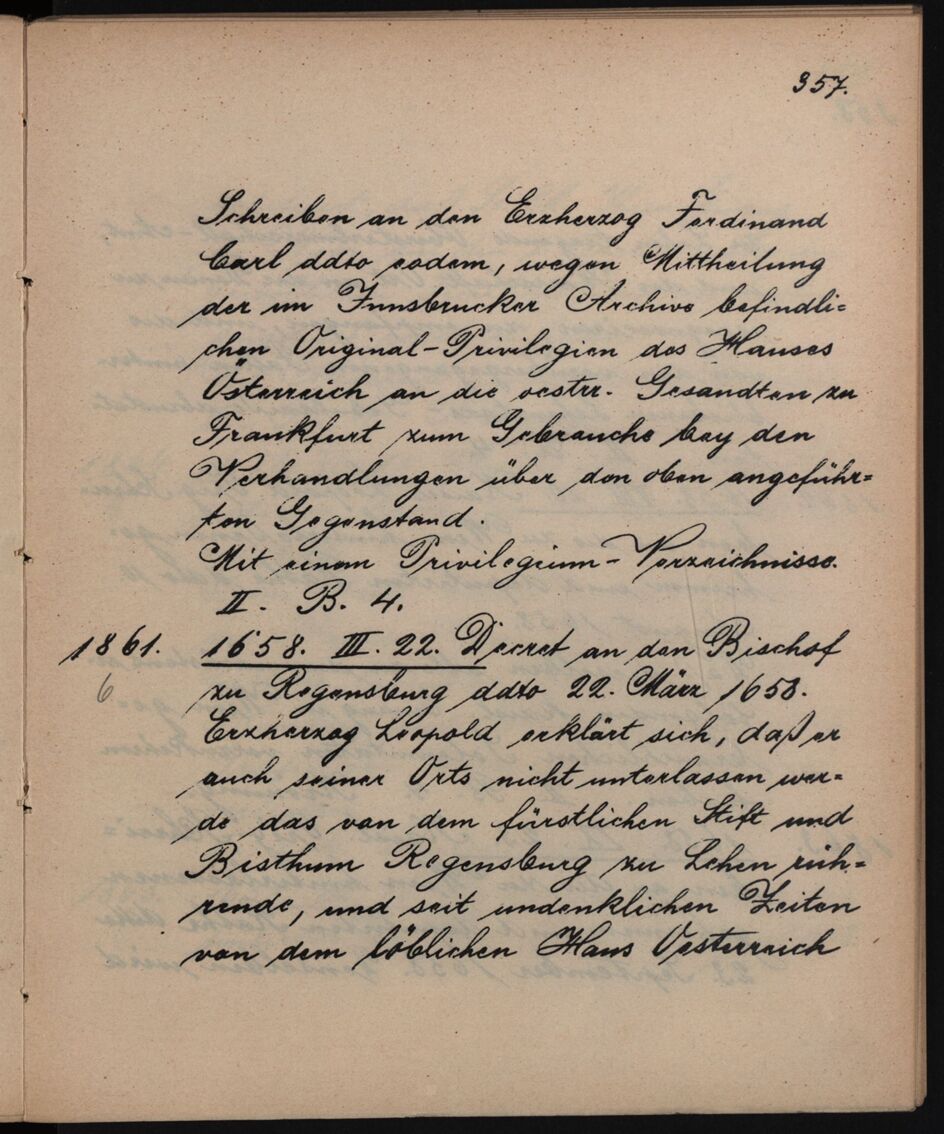 357.
Schreiben an den Erzherzog Ferdinand
Carl ddto eodem, wegen Mittheilung
der im Innsbrucker Archive befindli=
chen Original-Privilegien des Hauses
Österreich an die oestrr. Gesandten zu
Frankfurt zum Gebrauche bey den
Verhandlungen über den oben angeführ=
ten Gegenstand.
Mit einem Privilegium-Verzeichnisse.
II. B. 4.
1861. 1658. III. 22. Decret an den Bischof
6 zu Regensburg ddto 22. März 1658.
Erzherzog Leopold erklärt sich, daß er
auch seiner Orts nicht unterlassen wer=
de das von dem fürstlichen Stift und
Bisthum Regensburg zu Lehen rüh=
rende, und seit undenklichen Zeiten
von dem löblichen Haus Oesterreich